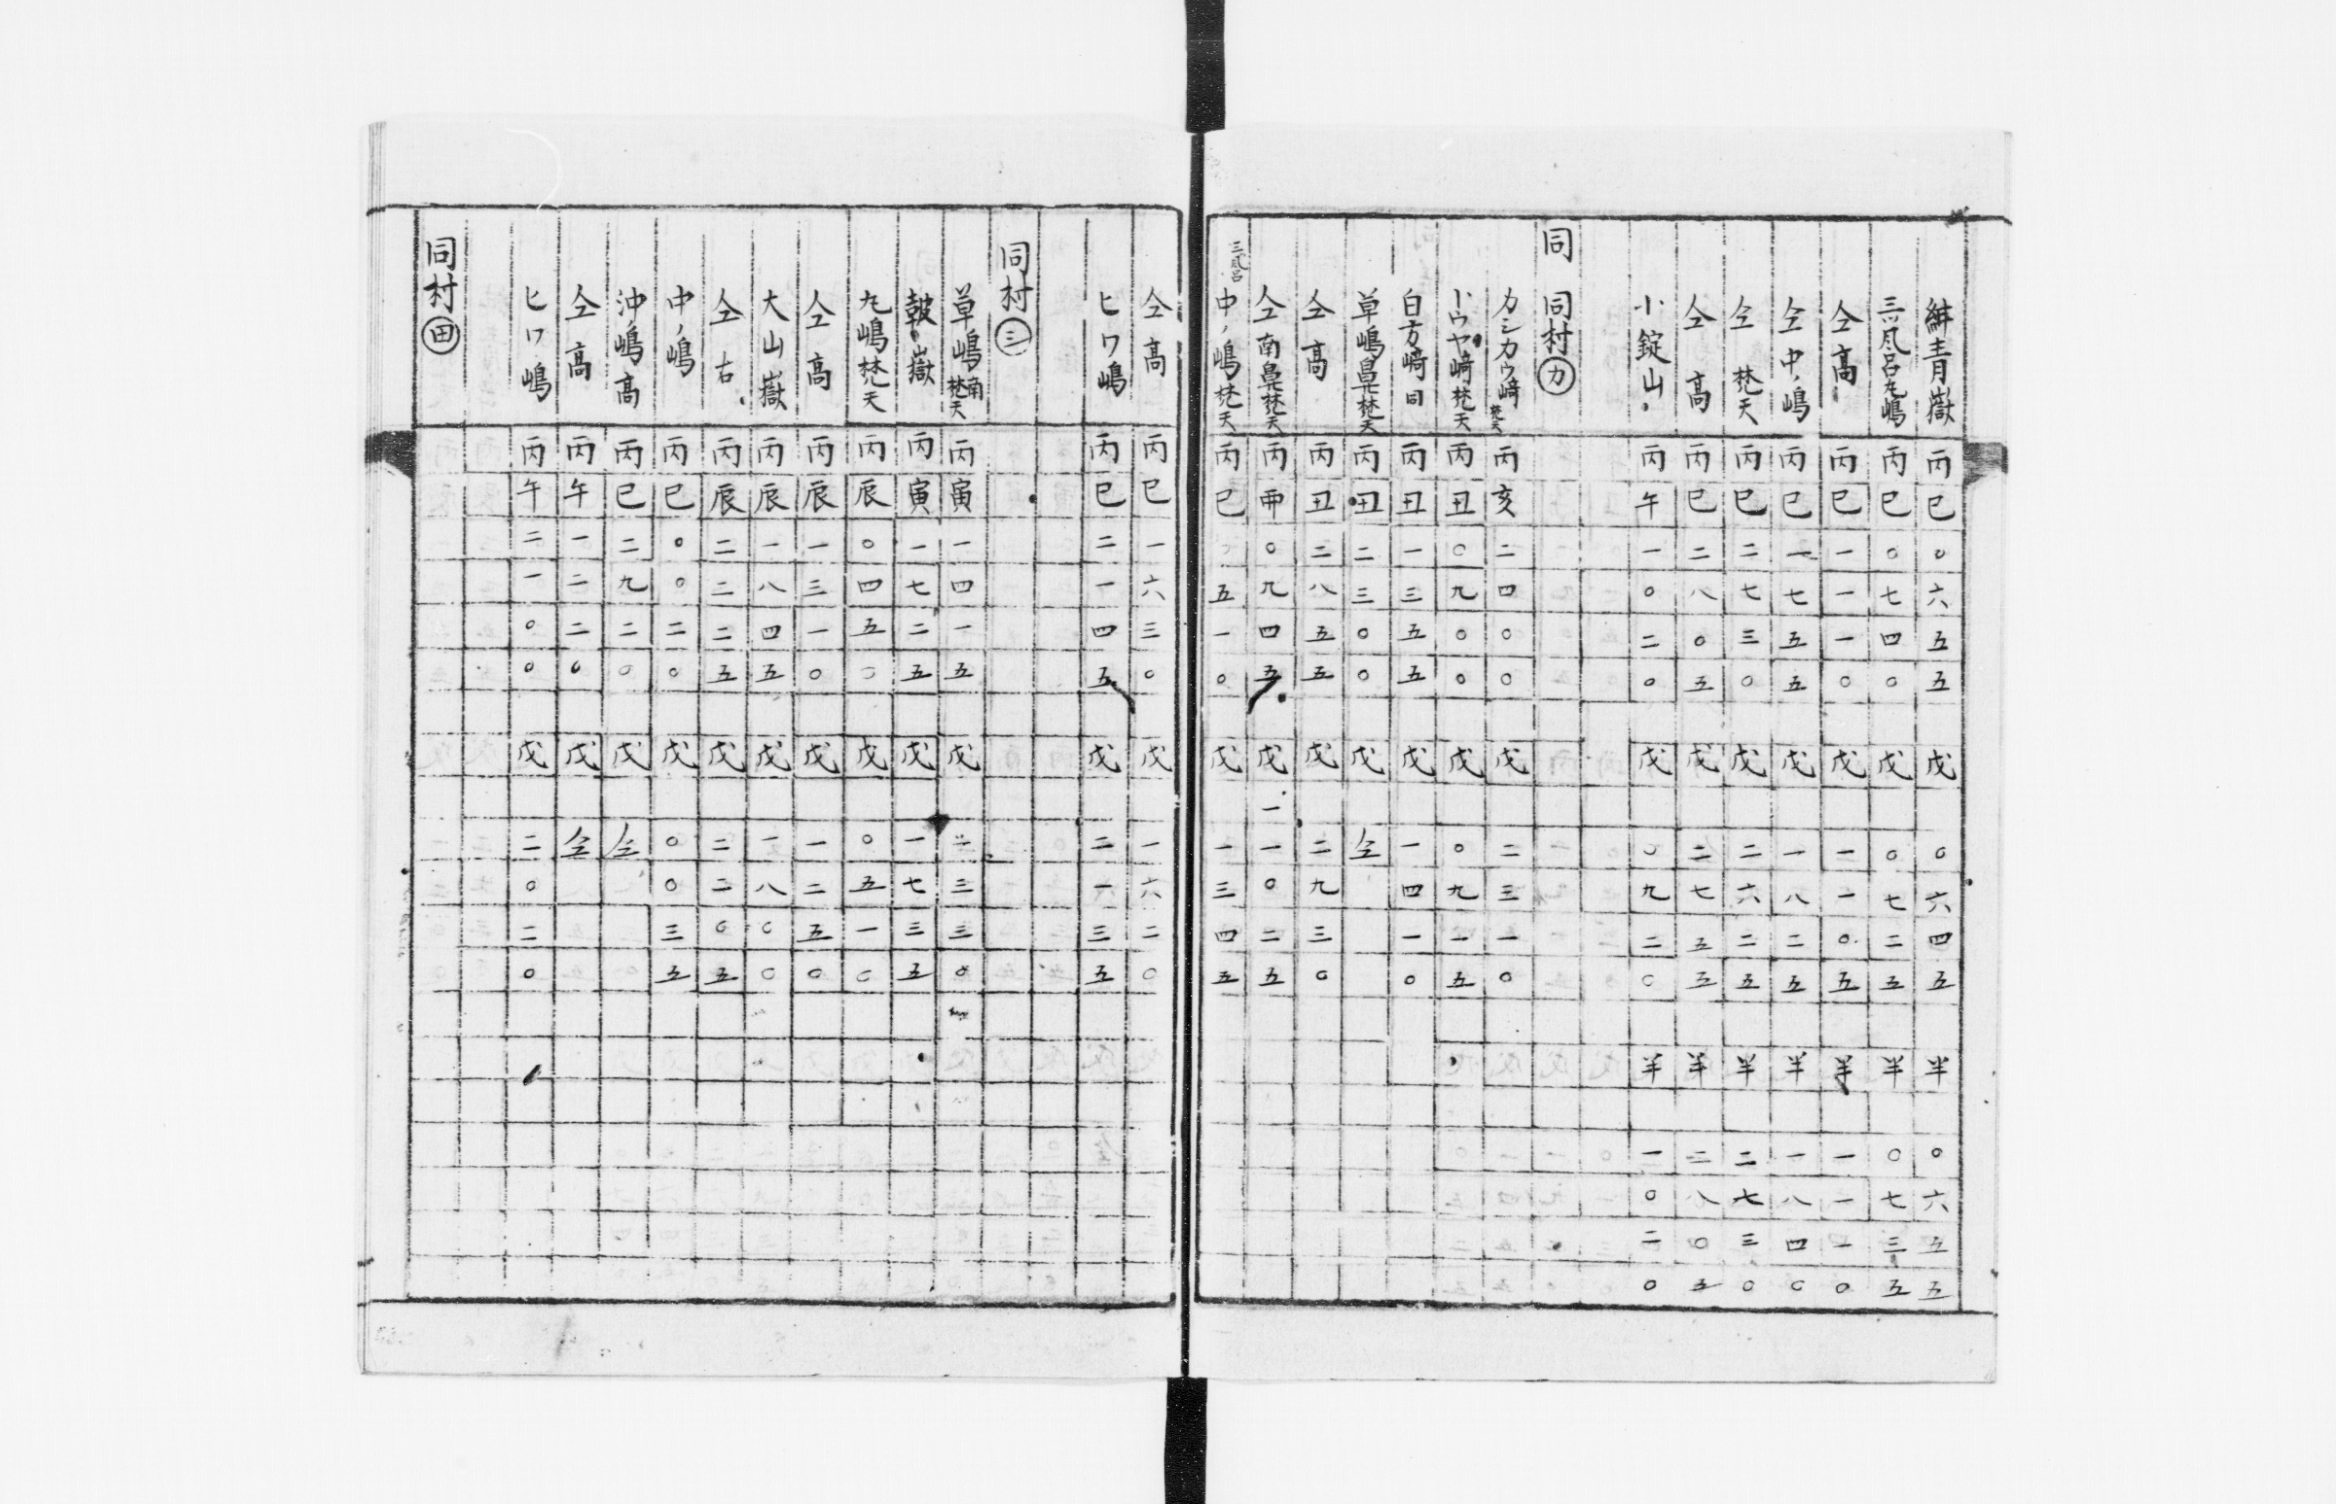 紺青嶽 丙巳〇六五五 戊〇六四五 半〇六五五
三ツ風呂九嶋 丙巳〇七四〇 戊〇七二五 半〇七三五
仝高 丙巳一一一〇 戊一一〇五 半一一一〇
仝中ノ嶋 丙巳一七五五 戊一八二五 半一八四〇
仝梵天 丙巳二七三〇 戊二六二五 半二七三〇
仝高 丙巳二八〇五 戊二七五五 半二八〇五
小錠山 丙午一〇二〇 戊〇九二〇 半一〇二〇
同 同村㋕
カシカウ﨑梵天 丙亥二四〇〇 戊二三一〇
トウヤ﨑梵天 丙丑〇九〇〇 戊〇九一五
白方﨑 丙丑一三五五 戊一四一〇
草嶋鼻梵天 丙丑二三〇〇 戊仝
仝高 丙丑二八五五 戊二九三〇
仝南鼻梵天 丙 〇九四五 戊一一〇二五
三風呂中ノ嶋梵天 丙巳〇五一〇 戊一三四五
仝高 丙巳一六三〇 戊一六二〇
ヒワ嶋 丙巳二一四五 戊二一三五
同村㊂
草嶋南梵天 丙寅一四一五 戊 三三〇
皷嶽 丙寅一七二五 戊一七三五
九嶋梵天 丙辰〇四五〇 戊〇五一〇
仝高 丙辰一三一〇 戊一二五〇
大山嶽 丙辰一八四五 戊一八〇〇
仝右 丙辰二二二五 戊二二〇五
中ノ嶋 丙巳〇〇二〇 戊〇〇三五
沖ノ嶋高 丙巳二九二〇 戊仝
仝高 丙午一二二〇 戊仝
ヒワ嶋 丙午二一〇〇 戊二〇二〇
同村田